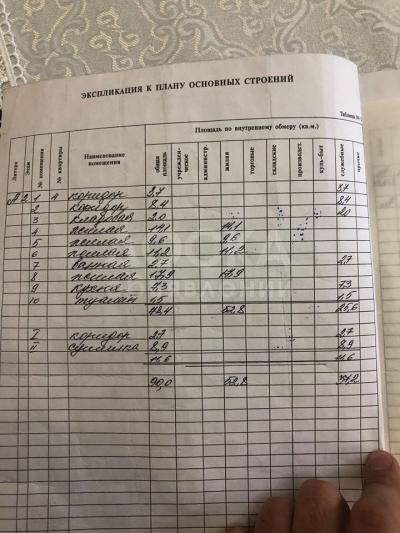 ЭКСПЛИКАЦИЯ К ПЛАНУ ОСНОВНЫХ СТРОЕНИЙ
Таблица №
Площадь по внутреннему обмеру (кв.м.)
Литера Этаж № помещения № квартиры Наименование помещения общая площадь учрежденческое администр. жилая торговые складские производст. культ-быт служебные прочие
А 2 1 4 коридор 3,7 3,7
2 коридор 8,4 8,4
3 кладовая 2,0 2,0
4 жилая 14,1 14,1
5 жилая 9,6 9,6
6 жилая 11,2 11,2
7 ванная 2,7 2,7
8 жилая 17,9 17,9
9 кухня 7,3 7,3
10 туалет 1,5 1,5
78,4 52,8 25,6
I коридор 2,7 2,7
II сушилка 8,9 8,9
11,6 11,6
90,0 52,8 37,2